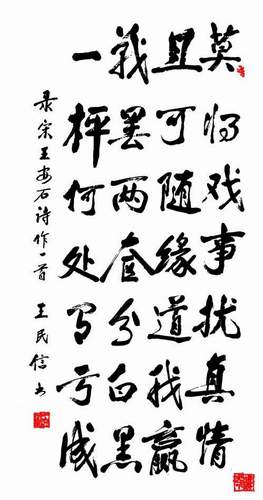 莫将戏事扰真情
且可随缘道我赢
战罢两奁分白黑
一枰何处有亏成
录宋王安石诗作一首 王民信书